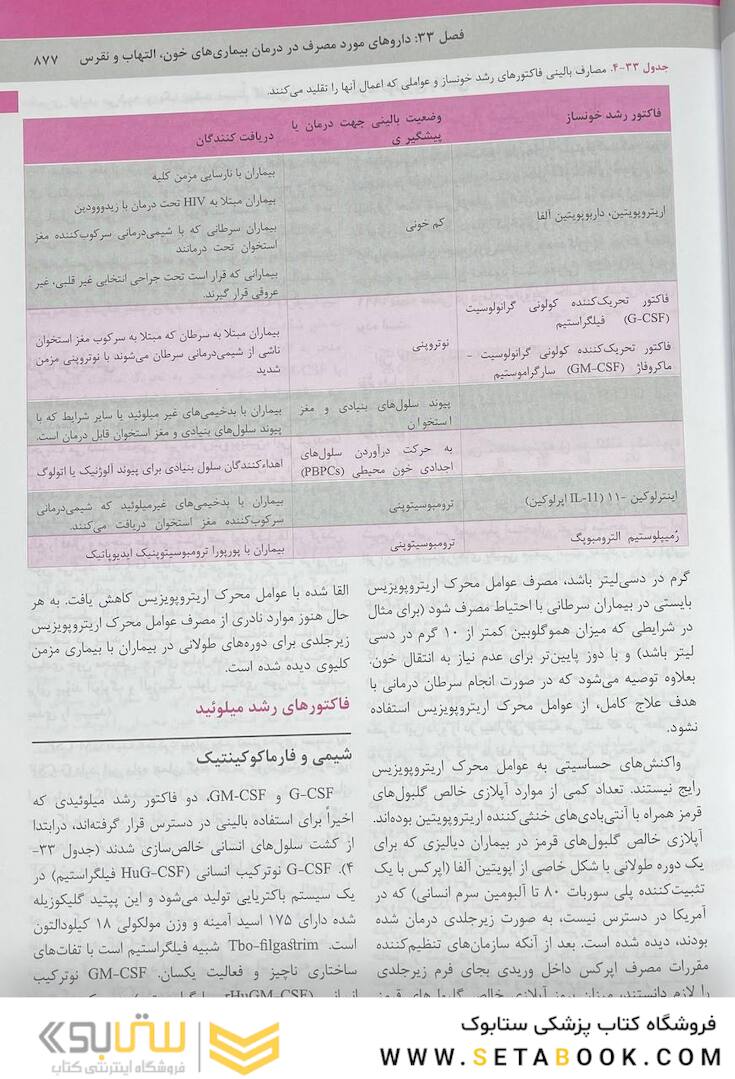 فصل ۳۳: داروهای مورد مصرف در درمان بیماری‌های خون، التهاب و نقرس ۸۷۷
جدول ۳۳-۴. مصارف بالینی فاکتورهای رشد خونساز و عواملی که اعمال آنها را تقلید می‌کنند.
فاکتور رشد خونساز
وضعیت بالینی جهت درمان یا
پیشگیر ی
دریافت کنندگان
اریتروپویتین، داربوپویتین آلفا
کم خونی
بیماران با نارسایی مزمن کلیه
بیماران مبتلا به HIV تحت درمان با زیدوودین
بیماران سرطانی که با شیمی‌درمانی سرکوب‌کننده مغز
استخوان تحت درمانند
بیمارانی که قرار است تحت جراحی انتخابی غیر قلبی، غیر
عروقی قرار گیرند.
فاکتور تحریک‌کننده کولونی گرانولوسیت
(G-CSF) فیلگراستیم
فاکتور تحریک‌کننده کولونی گرانولوسیت -
ماکروفاژ (GM-CSF) سارگراموستیم
نوتروپنی
بیماران مبتلا به سرطان که مبتلا به سرکوب مغز استخوان
ناشی از شیمی‌درمانی سرطان می‌شوند با نوتروپنی مزمن
شدید
پیوند سلول‌های بنیادی و مغز
استخوان
بیماران با بدخیمی‌های غیر میلوئید یا سایر شرایط که با
پیوند سلول‌های بنیادی و مغز استخوان قابل درمان است.
به حرکت درآوردن سلول‌های
اجدادی خون محیطی (PBPCs)
اهداءکنندگان سلول بنیادی برای پیوند آلوژنیک یا اتولوگ
اینترلوکین -۱۱ (IL-11 اپرلوکین)
ترومبوسیتوپنی
بیماران با بدخیمی‌های غیرمیلوئید که شیمی‌درمانی
سرکوب‌کننده مغز استخوان دریافت می‌کنند.
رُمیپلوستیم الترومبوپگ
ترومبوسیتوپنی
بیماران با پورپورا ترومبوسیتوپنیک ایدیوپاتیک
گرم در دسی‌لیتر باشد، مصرف عوامل محرک اریتروپویزیس
بایستی در بیماران سرطانی با احتیاط مصرف شود (برای مثال
در شرایطی که میزان هموگلوبین کمتر از ۱۰ گرم در دسی
لیتر باشد) و با دوز پایین‌تر برای عدم نیاز به انتقال خون.
بعلاوه توصیه می‌شود که در صورت انجام سرطان درمانی با
هدف علاج کامل، از عوامل محرک اریتروپویزیس استفاده
نشود.
واکنش‌های حساسیتی به عوامل محرک اریتروپویزیس
رایج نیستند. تعداد کمی از موارد آپلازی خالص گلبول‌های
قرمز همراه با آنتی‌بادی‌های خنثی‌کننده اریتروپویتین بوده‌اند.
آپلازی خالص گلبول‌های قرمز در بیماران دیالیزی که برای
یک دوره طولانی با شکل خاصی از اپویتین آلفا (اپرکس با یک
تثبیت‌کننده پلی سوربات ۸۰ تا آلبومین سرم انسانی) که در
آمریکا در دسترس نیست، به صورت زیرجلدی درمان شده
بودند، دیده شده است. بعد از آنکه سازمان‌های تنظیم‌کننده
مقررات مصرف اپرکس داخل وریدی بجای فرم زیرجلدی
را لازم دانستند، میزان بروز آپلازی خالص گلبول‌های قرمز
القا شده با عوامل محرک اریتروپویزیس کاهش یافت. به هر
حال هنوز موارد نادری از مصرف عوامل محرک اریتروپویزیس
زیرجلدی برای دوره‌های طولانی در بیماران با بیماری مزمن
کلیوی دیده شده است.
فاکتورهای رشد میلوئید
شیمی و فارماکوکینتیک
G-CSF و GM-CSF، دو فاکتور رشد میلوئیدی که
اخیراً برای استفاده بالینی در دسترس قرار گرفته‌اند، درابتدا
از کشت سلول‌های انسانی خالص‌سازی شدند (جدول ۳۳-
۴). G-CSF نوترکیب انسانی (HuG-CSF فیلگراستیم) در
یک سیستم باکتریایی تولید می‌شود و این پپتید گلیکوزیله
شده دارای ۱۷۵ اسید آمینه و وزن مولکولی ۱۸ کیلودالتون
است. Tbo-filgastrim شبیه فیلگراستیم است با تفات‌های
ساختاری ناچیز و فعالیت یکسان. GM-CSF نوترکیب
انسانی (HuGM-CSF)
فروشگاه کتاب پزشکی ستابوک
WWW.SETABOOK.COM
ستابوک
فروشگاه اینترنتی کتاب